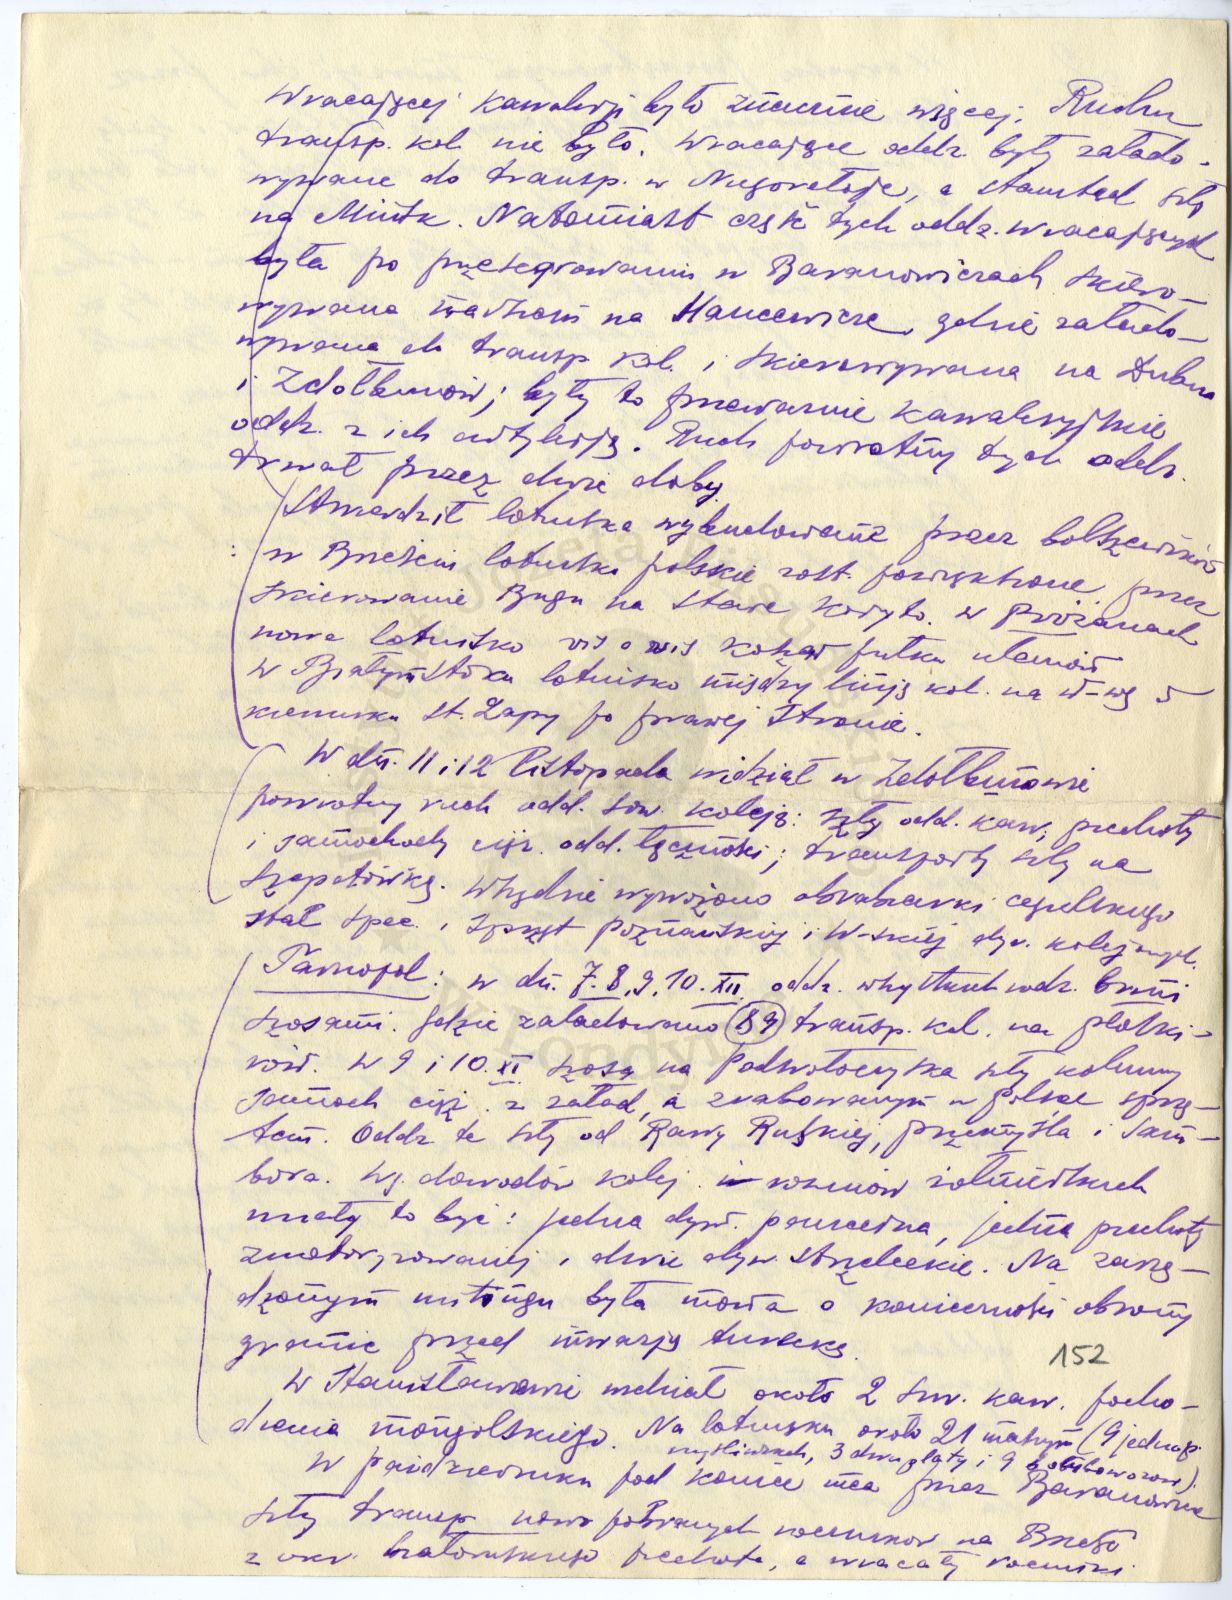 Wracającej kawalerji było znacznie więcej. Ruchu
transp. kol. nie było. Wracające oddz. były załado-
wywane do transp. w Niegorełoje, a stamtąd szły
na Mińsk. Natomiast część tych oddz. wracających
była po przesegrowaniu w Baranowiczach skiero-
wywana marszem na Hancewicze, gdzie załado-
wywana do transp. kol. i skierowywana na Dubno
i Zdołbunów; były to przeważnie kawaleryjskie
oddz. z ich artylerją. Ruch powrotny tych oddz.
trwał przez dwie doby.
Stwierdził lotniska wybudowane przez bolszewików
: w Brześciu lotnisko polskie zost. powiększone przez
skierowanie Bugu na stare koryto. w Prużanach
nowe lotnisko vis a vis koszar pułku ułanów
w Białymstoku lotnisko między linją kol. na W-wę i
kierunku st. Łapy po prawej stronie.
W dn. 11 i 12 listopada widział w Zdołbunowie
powrotny ruch odd. sow. koleją: szły odd. kaw, piechoty
i samochody cięż. odd. łączności; transporty szły na
Szepetówkę. Względnie wywożono obrabiarki cegielskiego
stal spec. i sprzęt Poznańskiej i W-skiej dyr. kolejowych.
Tarnopol: w dn. 7. 8, 9, 10. XII. oddz. wszystkich rodz. broni
szosami. Gdzie załadowano 89 transp. kol. na Płoski-
rów. W 9 i 10. XI szosą na Podwołoczyska szły kolumny
samoch. cięż. z załad, a zrabowanym w Polsce sprzę-
tem. Oddz. te szły od Rawy Ruskiej, Przemyśla i Sam-
bora. Wg. dowodów kolej. i rozmów żołnierskich
miały to być: jedna dyw. pancerna, jedna piechoty
zmotoryzowanej i dwie dyw. strzeleckie. Na zarzą-
dzonym mitingu była mowa o konieczności obrony
granic przed inwazją turecką.
152
W Stanisławowie widział około 2 szw. kaw. pocho-
dzenia mongolskiego. Na lotnisku około 21 maszyn (9 jednopł.
myśliwskich, 3 dwupłaty i 9 bombowców).
W październiku pod koniec m-ca przez Baranowicze
szły transp. nowo pobranych roczników na Brześć
z okr. białoruskiego piechota, a wracały roczniki